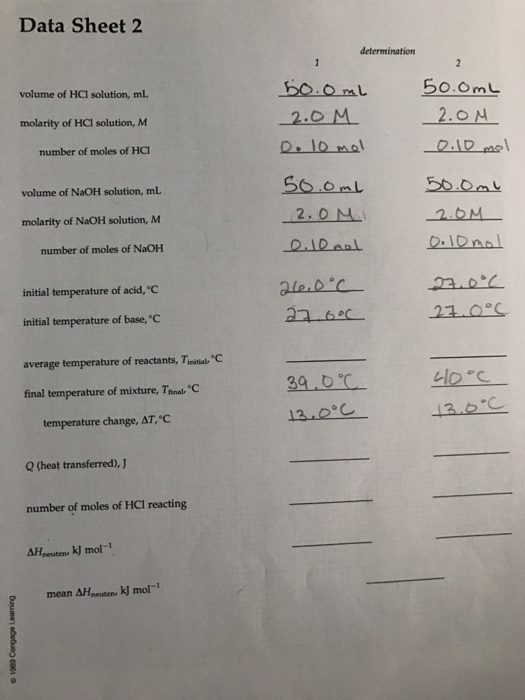 Data Sheet 2
determination
1 2
volume of HCl solution, mL 50.0 mL 50.0mL
molarity of HCl solution, M 2.0 M 2.0 M
number of moles of HCl 0.10 mol 0.10 mol
volume of NaOH solution, mL 50.0mL 50.0mL
molarity of NaOH solution, M 2.0 M 2.0M
number of moles of NaOH 0.10 mol 0.10mol
initial temperature of acid, °C 26.0°C 27.0°C
initial temperature of base, °C 27.0°C
average temperature of reactants, Tinitial, °C
final temperature of mixture, Tfinal, °C 39.0°C 40°C
temperature change, ΔT, °C 13.0°C 13.0°C
Q (heat transferred), J
number of moles of HCl reacting
ΔHneutzn, kJ mol⁻¹
mean ΔHneutzn, kJ mol⁻¹
© 1989 Cengage Learning